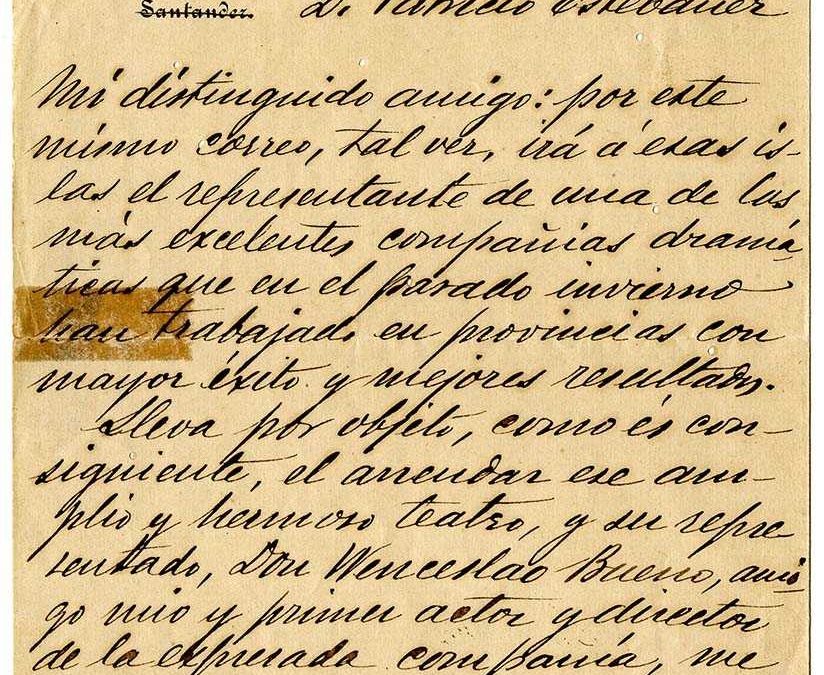 Santander. D. Patricio Estévanez
Mi distinguido amigo: por este
mismo correo, tal vez, irá á esas is-
las el representante de una de las
más excelentes compañias dramá-
ticas que en el pasado invierno
han trabajado en provincias con
mayor éxito y mejores resultados.
Lleva por objeto, como és con-
siguiente, el arrendar ese am-
plio y hermoso teatro, y su repre-
sentado, Don Wenceslao Bueno, ami-
go mio y primer actor y director
de la expresada compañía, me